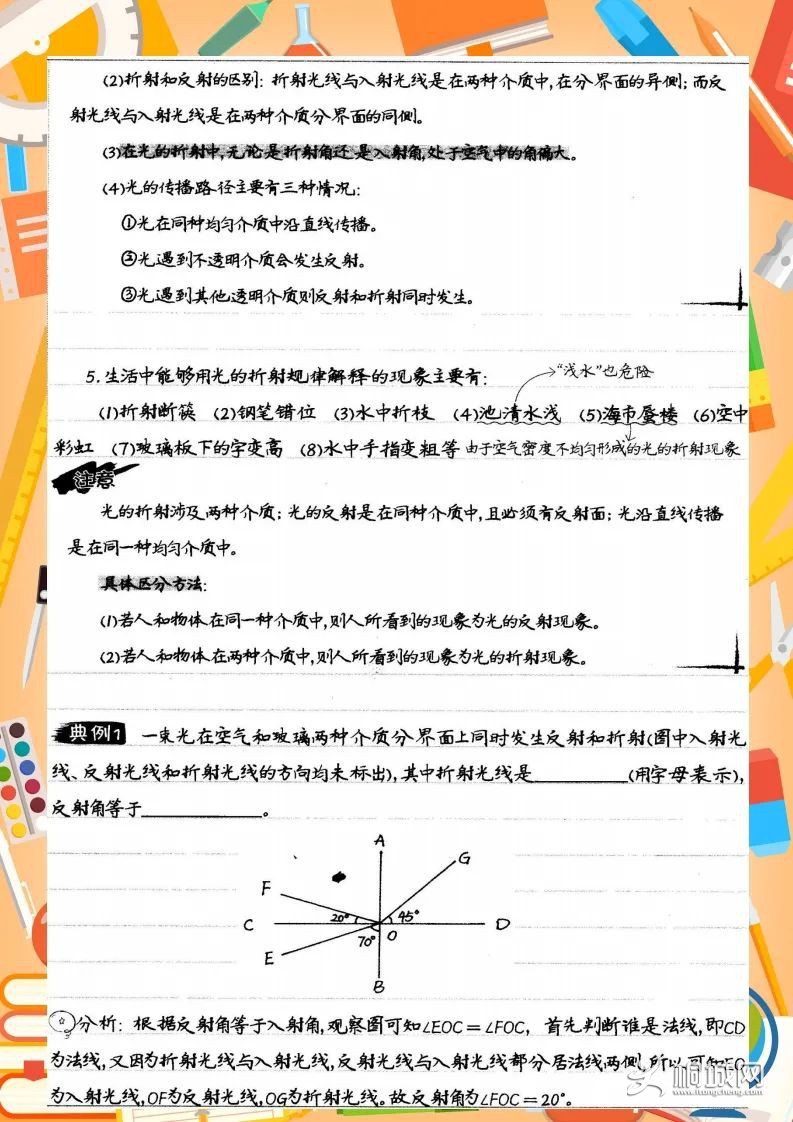 (2)折射和反射的区别：折射光线与入射光线是在两种介质中,在分界面的异侧；而反
射光线与入射光线是在两种介质分界面的同侧。
(3)在光的折射中,无论是折射角还是入射角,处于空气中的角偏大。
(4)光的传播路径主要有三种情况：
①光在同种均匀介质中沿直线传播。
②光遇到不透明介质会发生反射。
③光遇到其他透明介质则反射和折射同时发生。
“浅水”也危险
5.生活中能够用光的折射规律解释的现象主要有：
(1)折射断筷 (2)钢笔错位 (3)水中折枝 (4)池清水浅 (5)海市蜃楼 (6)空中
彩虹 (7)玻璃板下的字变高 (8)水中手指变粗等 由于空气密度不均匀形成的光的折射现象
注意
光的折射涉及两种介质；光的反射是在同种介质中,且必须有反射面；光沿直线传播
是在同一种均匀介质中。
具体区分方法：
(1)若人和物体在同一种介质中,则人所看到的现象为光的反射现象。
(2)若人和物体在两种介质中,则人所看到的现象为光的折射现象。
典例1 一束光在空气和玻璃两种介质分界面上同时发生反射和折射(图中入射光
线、反射光线和折射光线的方向均未标出),其中折射光线是__________(用字母表示),
反射角等于____________。
A
G
F
20° 45°
C D
70° O
E
B
分析：根据反射角等于入射角,观察图可知∠EOC=∠FOC，首先判断谁是法线,即CD
为法线,又因为折射光线与入射光线,反射光线与入射光线都分居法线两侧,所以可知EO
为入射光线,OF为反射光线,OG为折射光线。故反射角为∠FOC=20°。
桐城网
www.itongcheng.com